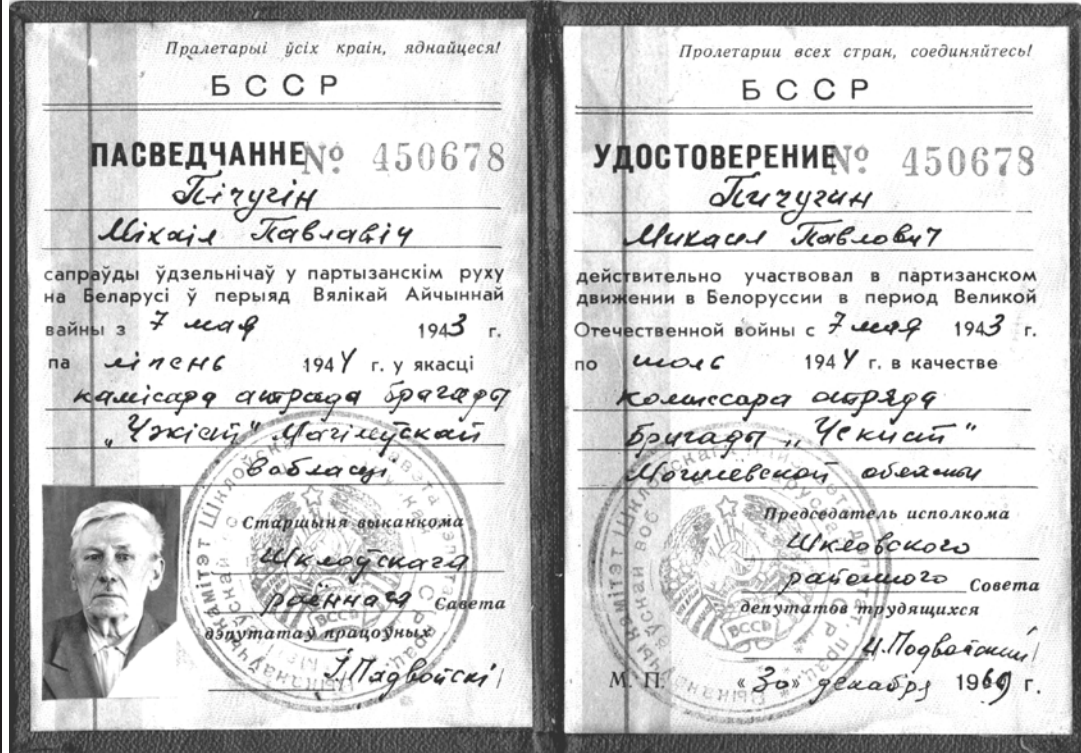 Пралетарыі ўсіх краін, яднайцеся!
БССР
ПАСВЕДЧАННЕ № 450678
Пічугін
Міхаіл Паўлавіч
сапраўды ўдзельнічаў у партызанскім руху
на Беларусі ў перыяд Вялікай Айчыннай
вайны з 7 мая 1943 г.
па ліпень 1944 г. у якасці
камісара атрада брагады
„Чэкіст" Магілеўскай
вобласці
Старшыня выканкома
Шклоўскага
раённага Савета
дэпутатаў працоўных
І. Падвойскі
Пролетарии всех стран, соединяйтесь!
БССР
УДОСТОВЕРЕНИЕ № 450678
Пичугин
Михаил Павлович
действительно участвовал в партизанском
движении в Белоруссии в период Великой
Отечественной войны с 7 мая 1943 г.
по июль 1944 г. в качестве
комиссара отряда
бригады „Чекист"
Могилевской области
Председатель исполкома
Шкловского
районного Совета
депутатов трудящихся
И. Подвойский
М. П. «30» декабря 1969 г.